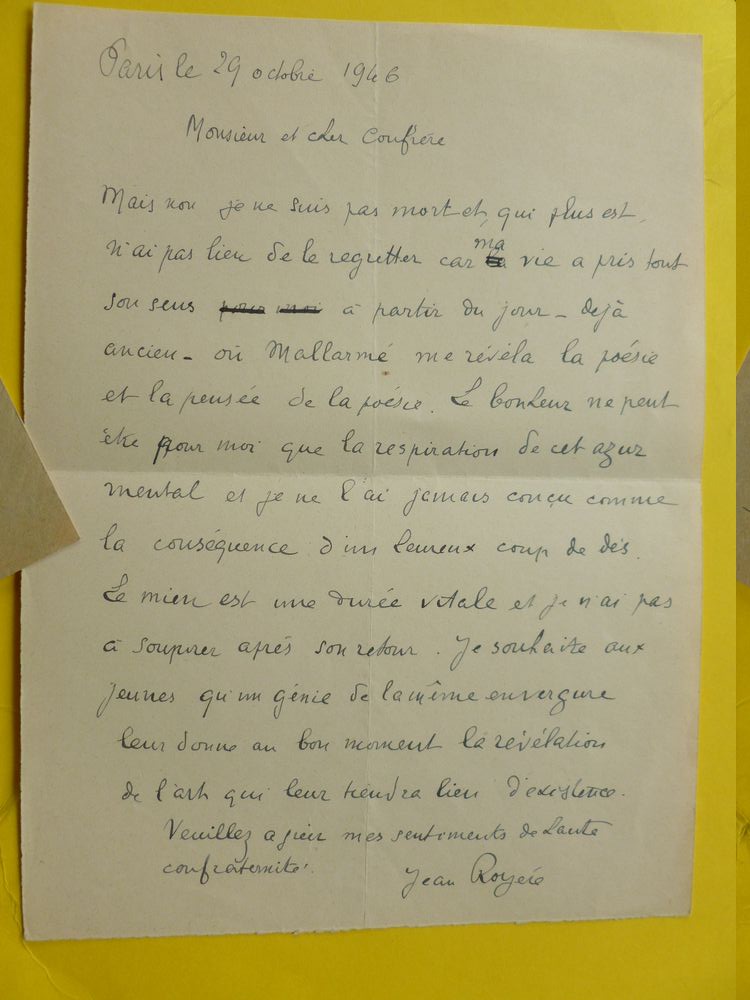 Paris le 29 octobre 1946
Monsieur et cher Confrère
Mais non je ne suis pas mort et, qui plus est,
n'ai pas lieu de le regretter car ma vie a pris tout
son sens pour moi à partir du jour - déjà
ancien - où Mallarmé me révéla la poésie
et la pensée de la poésie. Le bonheur ne peut
être pour moi que la respiration de cet azur
mental et je ne l'ai jamais conçu comme
la conséquence d'un heureux coup de dés.
Le mien est une durée vitale et je n'ai pas
à soupirer après son retour. Je souhaite aux
jeunes qu'un génie de la même envergure
leur donne au bon moment la révélation
de l'art qui leur tiendra lieu d'existence.
Veuillez agréer mes sentiments de haute
confraternité.
Jean Royère